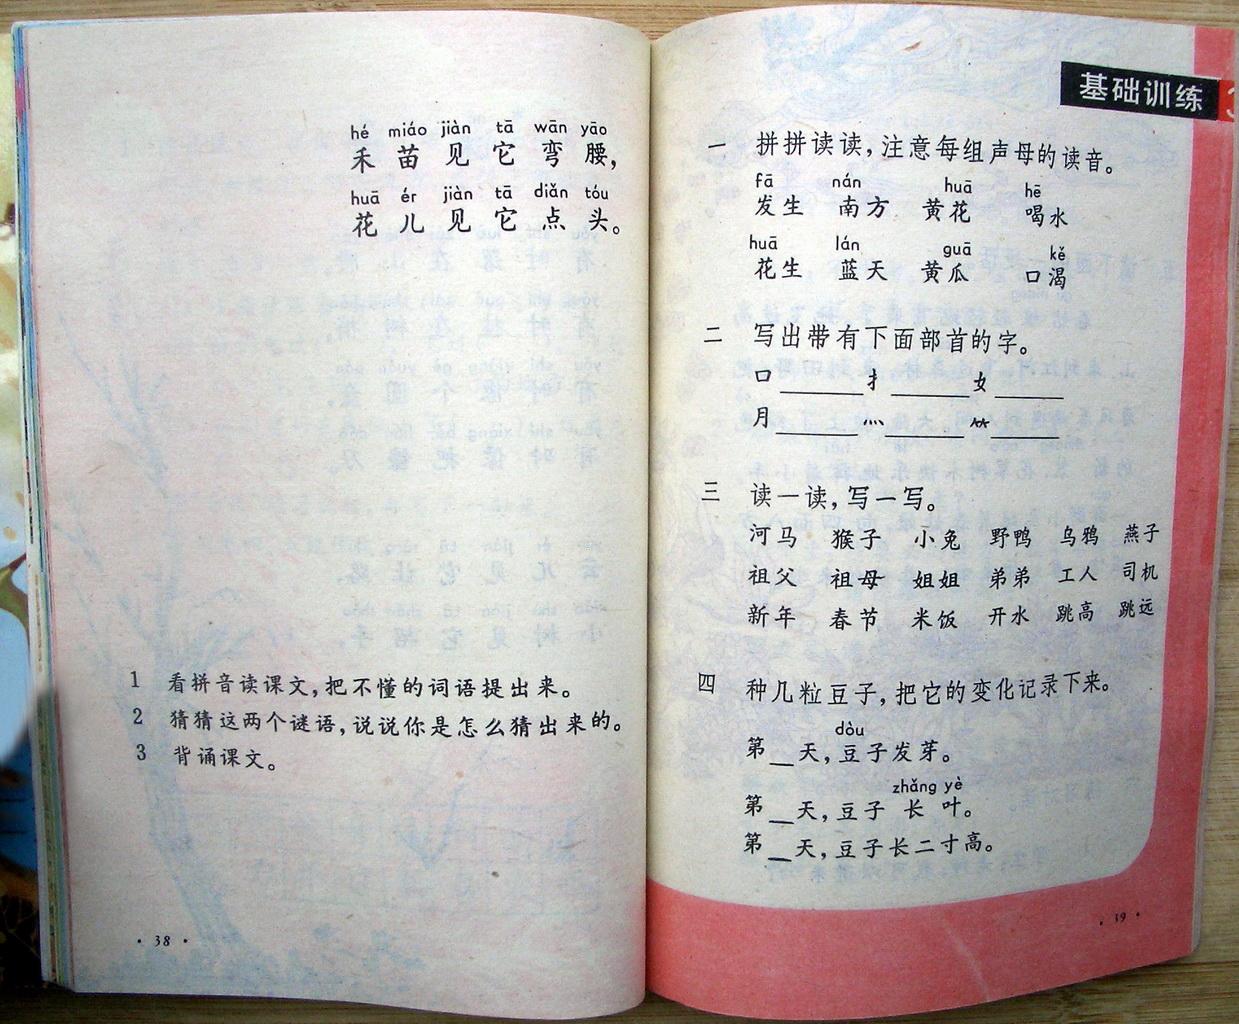 hé miáo jiàn tā wān yāo
禾苗见它弯腰，
huā ér jiàn tā diǎn tóu
花儿见它点头。
1 看拼音读课文，把不懂的词语提出来。
2 猜猜这两个谜语，说说你是怎么猜出来的。
3 背诵课文。
· 38 ·
基础训练 3
一 拼拼读读，注意每组声母的读音。
fā nán huā hē
发生 南方 黄花 喝水
huā lán guā kě
花生 蓝天 黄瓜 口渴
二 写出带有下面部首的字。
口____ 扌____ 女____
月____ 灬____ ⺮____
三 读一读，写一写。
河马 猴子 小兔 野鸭 乌鸦 燕子
祖父 祖母 姐姐 弟弟 工人 司机
新年 春节 米饭 开水 跳高 跳远
四 种几粒豆子，把它的变化记录下来。
dòu
第__天，豆子发芽。
zhǎng yè
第__天，豆子长叶。
第__天，豆子长二寸高。
· 39 ·